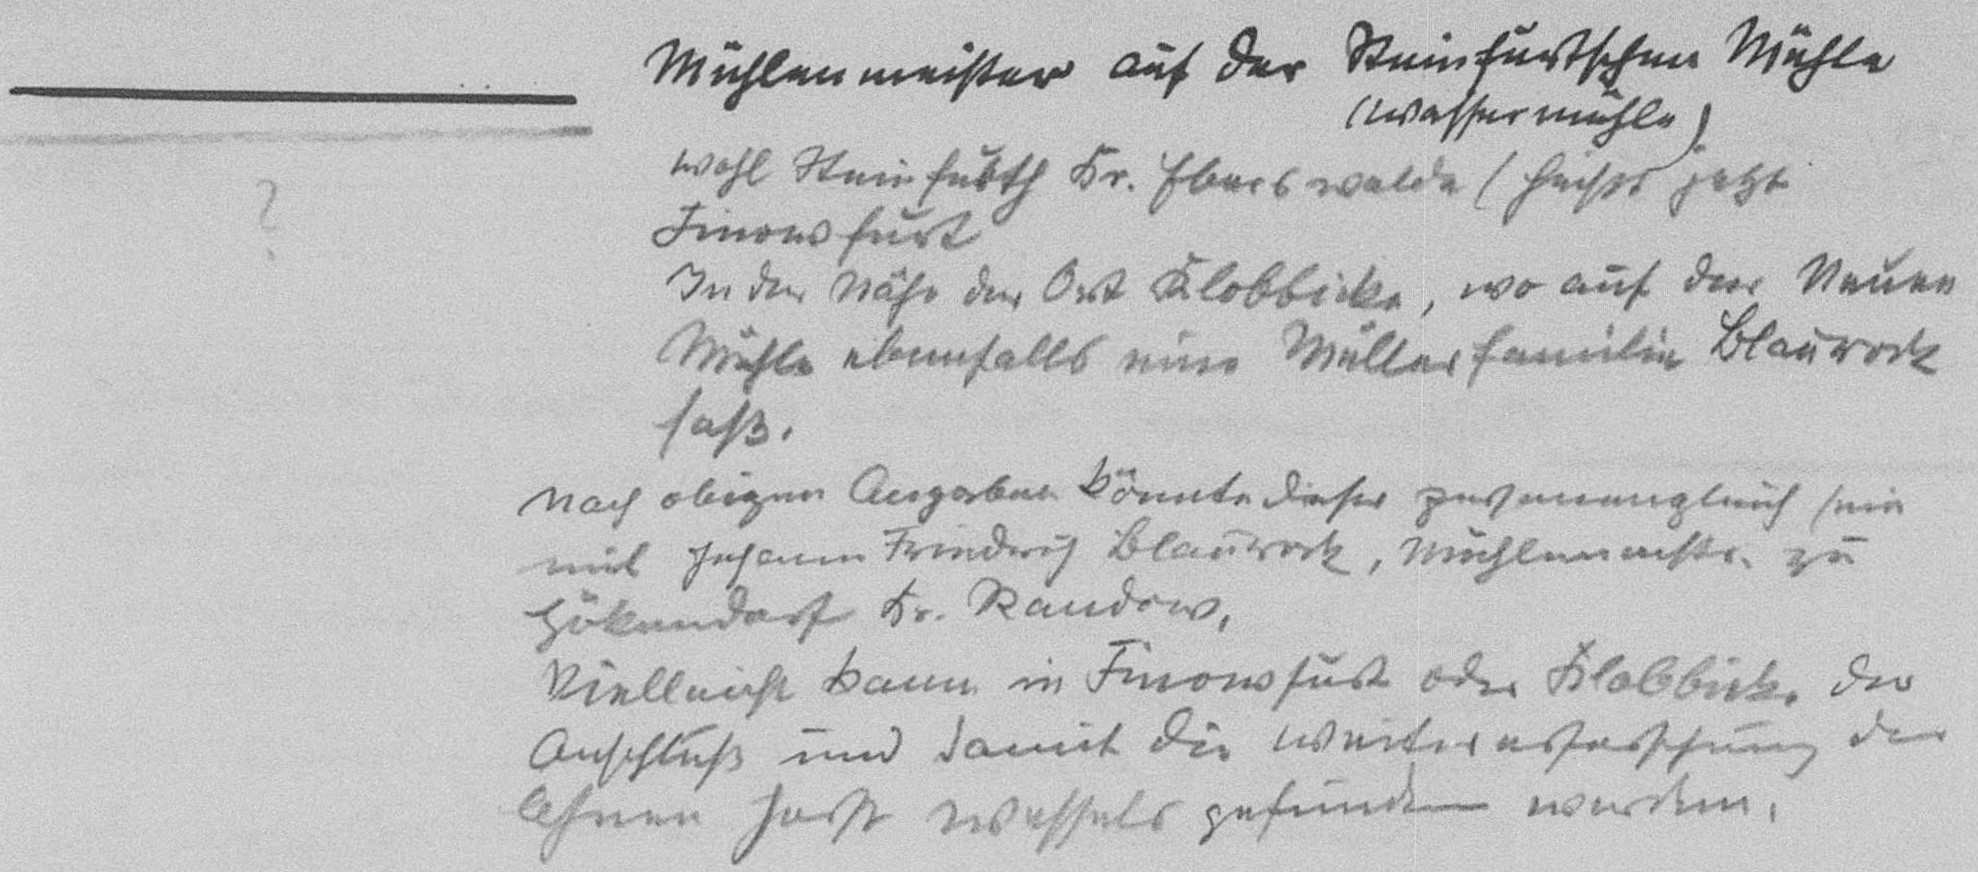 Mühlenmeister auf der Steinfurtschen Mühle
(Wassermühle)
wohl Steinfurth Kr. Eberswalde (heißt jetzt
?
Finowfurt
In der Nähe der Ort Klobbicke, wo auf der Neuen
Mühle ebenfalls eine Müllerfamilie Blaurock
saß.
Nach obigen Angaben könnte dieser personengleich sein
mit Johann Friedrich Blaurock, Mühlenmstr. zu
Hökendorf Kr. Randow.
Vielleicht kann in Finowfurt oder Klobbicke der
Anschluß und damit die Weitererforschung der
Ahnen Horst Wessels gefunden werden.